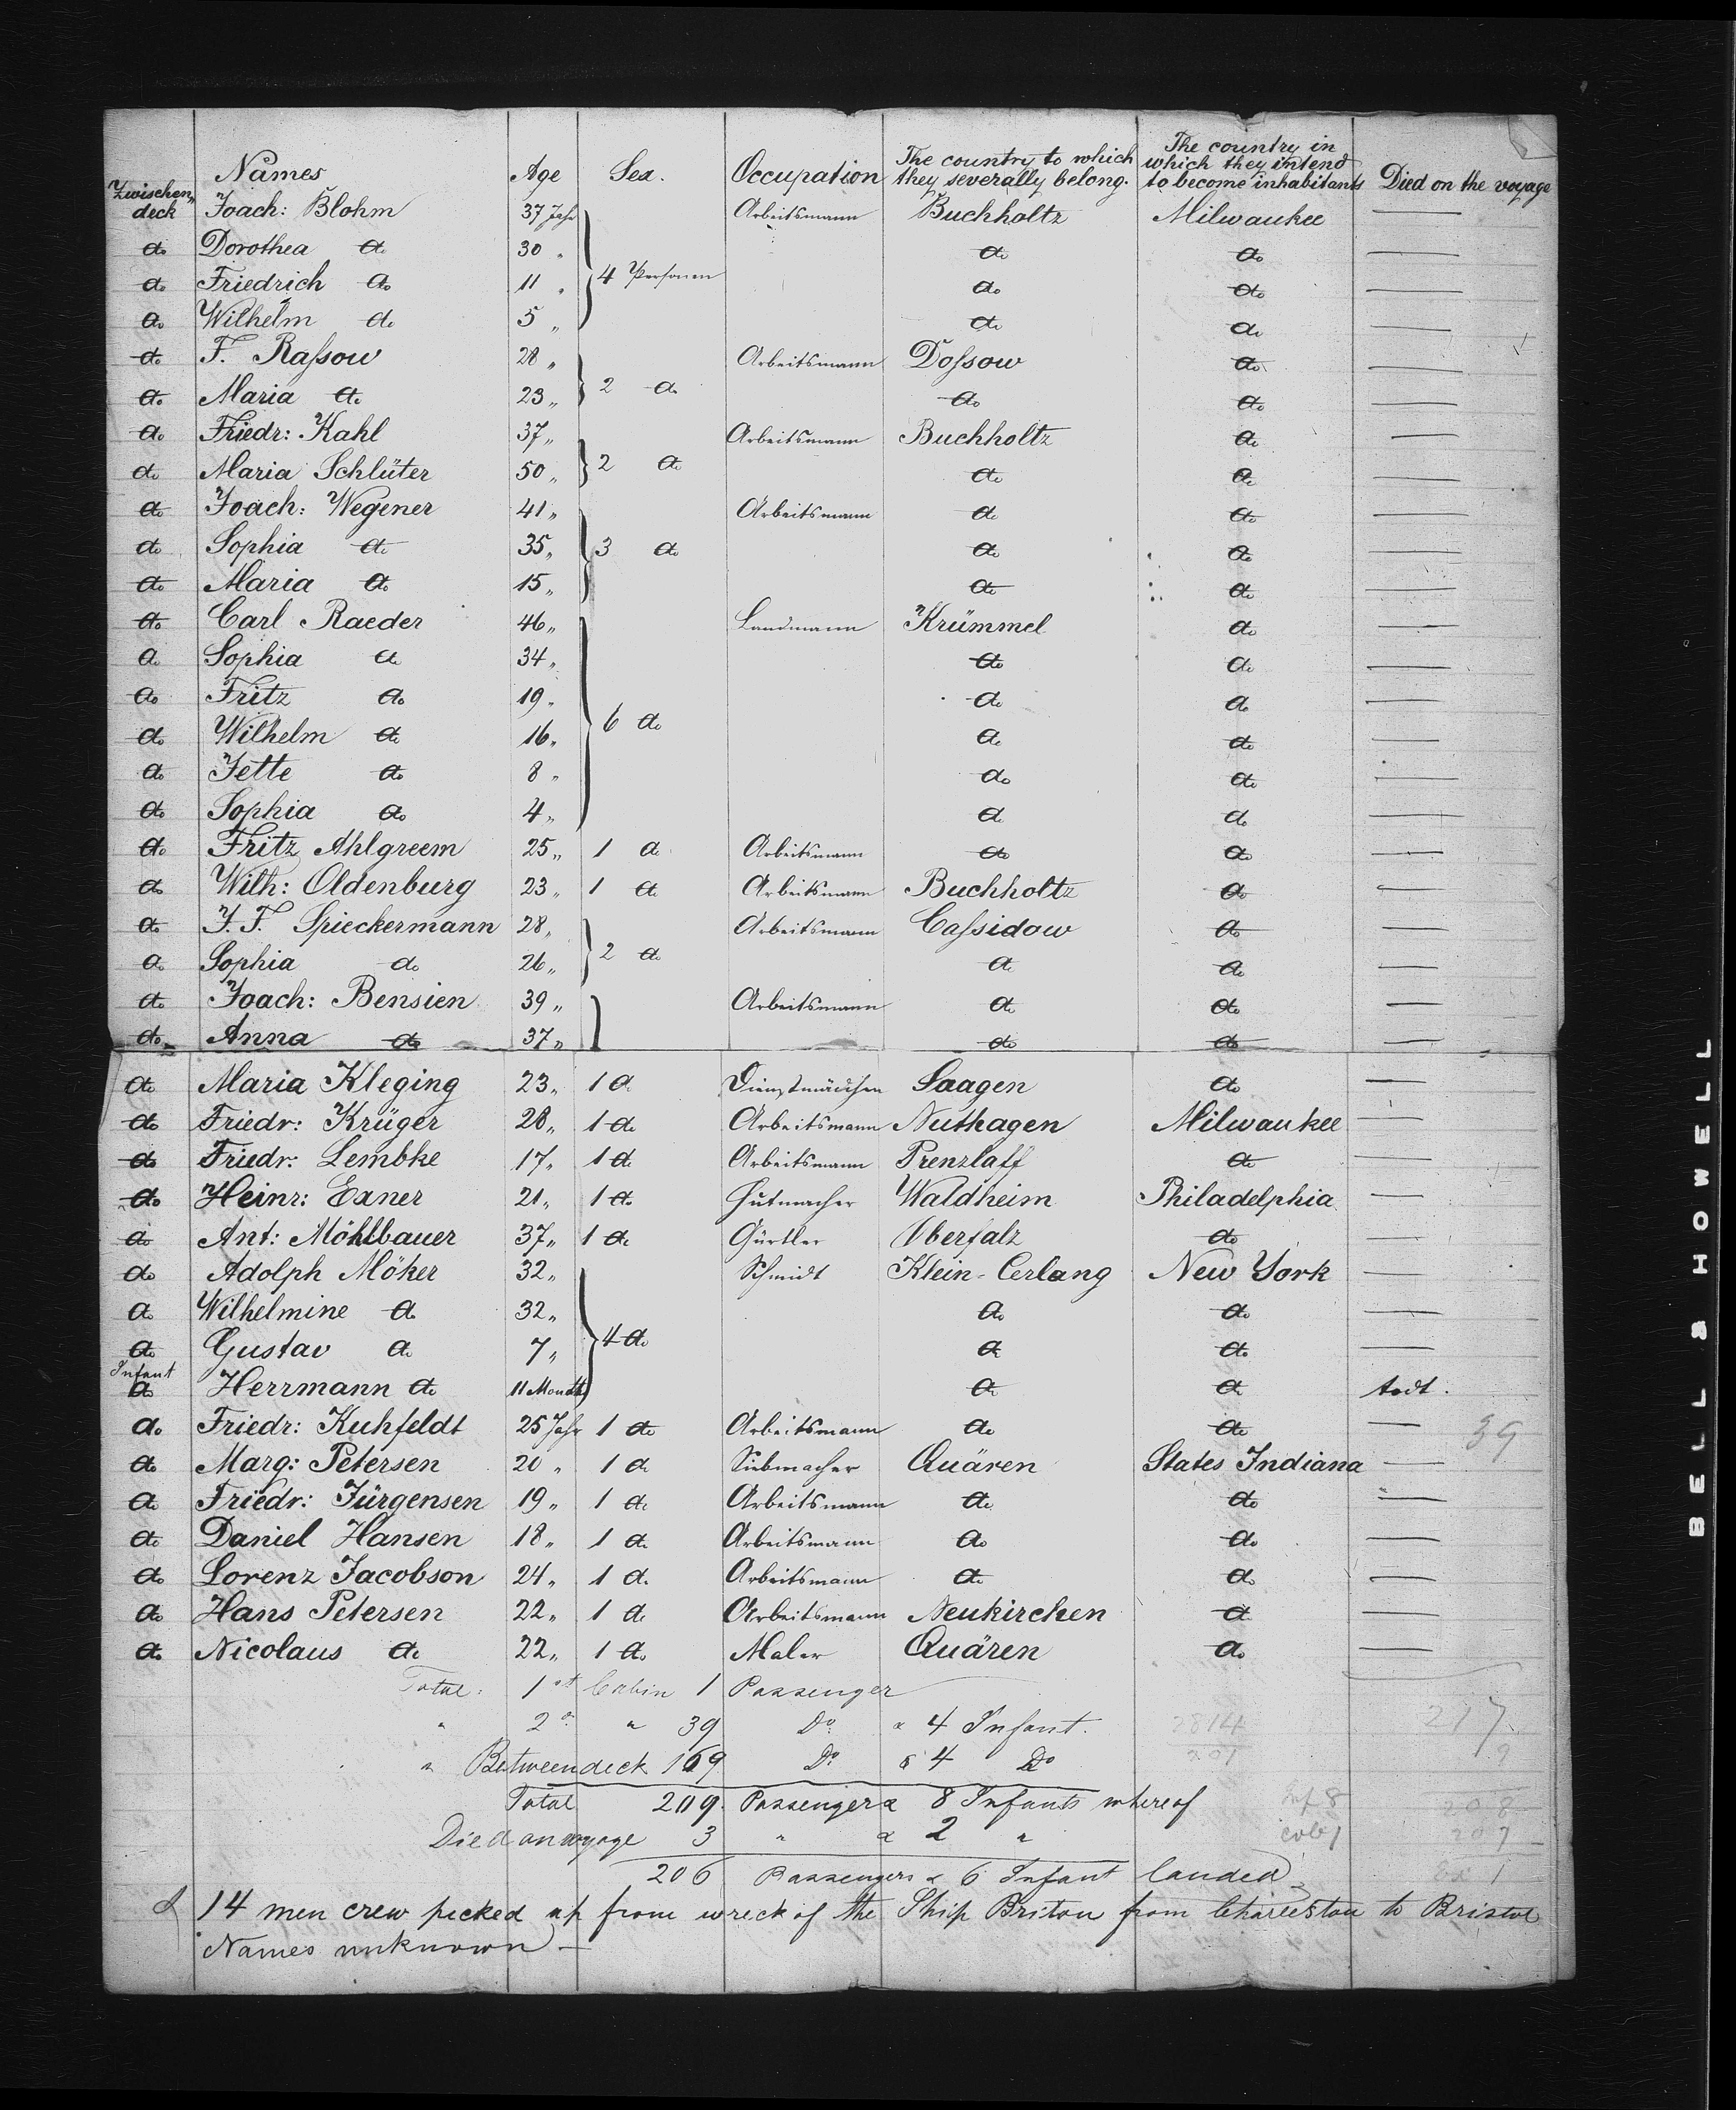 Names Age Sex. Occupation The country to which they severally belong. The country in which they intend to become inhabitants Died on the voyage
Zwischendeck Joach: Blohm 37 Jahr Arbeitsmann Buchholtz Milwaukee —
do Dorothea do 30 " do do —
do Friedrich do 11 " 4 Personen do do —
do Wilhelm do 5 " do do —
do F. Raſsow 28 " Arbeitsmann Doſsow do —
do Maria do 23 " 2 do do do —
do Friedr: Kahl 37 " Arbeitsmann Buchholtz do —
do Maria Schlüter 50 " 2 do do do —
do Joach: Wegener 41 " Arbeitsmann do do —
do Sophia do 35 " 3 do do do —
do Maria do 15 " do do —
do Carl Raeder 46 " Landmann Krümmel do —
do Sophia do 34 " do do —
do Fritz do 19 " do do —
do Wilhelm do 16 " 6 do do do —
do Jette do 8 " do do —
do Sophia do 4 " do do —
do Fritz Ahlgreem 25 " 1 do Arbeitsmann do do —
do Wilh: Oldenburg 23 " 1 do Arbeitsmann Buchholtz do —
do J. F. Spieckermann 28 " Arbeitsmann Caſsidow do —
do Sophia do 26 " 2 do do do —
do Joach: Bensien 39 " Arbeitsmann do do —
do Anna do 37 " do do —
do Maria Kleging 23 " 1 do Dienstmädchen Saagen do —
do Friedr: Krüger 28 " 1 do Arbeitsmann Nuthagen Milwaukee —
do Friedr: Lembke 17 " 1 do Arbeitsmann Prenzlaff do —
do Heinr: Exner 21 " 1 do Hutmacher Waldheim Philadelphia —
do Ant: Möhlbauer 37 " 1 do Gürtler Oberfalz do —
do Adolph Möker 32 " Schmidt Klein-Cerlang New York —
do Wilhelmine do 32 " do do —
do Gustav do 7 " 4 do do do —
Infant
do Herrmann do 11 Month do do todt.
do Friedr: Kuhfeldt 25 Jahr 1 do Arbeitsmann do do — 39
do Marg: Petersen 20 " 1 do Siebmacher Quären States Indiana —
do Friedr: Jürgensen 19 " 1 do Arbeitsmann do do —
do Daniel Hansen 18 " 1 do Arbeitsmann do do —
do Lorenz Jacobson 24 " 1 do Arbeitsmann do do —
do Hans Petersen 22 " 1 do Arbeitsmann Neukirchen do —
do Nicolaus do 22 " 1 do Maler Quären do —
Total: 1st Cabin 1 Passenger
" 2d " 39 Do & 4 Infant. 2814 217
" Betweendeck 169 Do & 4 Do 201 9
Total 209. Passenger & 8 Infants whereof Inf 8 208
Died on voyage 3 " & 2 " 207
206 Passengers & 6 Infant landed 1
& 14 men crew picked up from wreck of the Ship Briton from Charleston to Bristol
Names unknown —
BELL & HOWELL